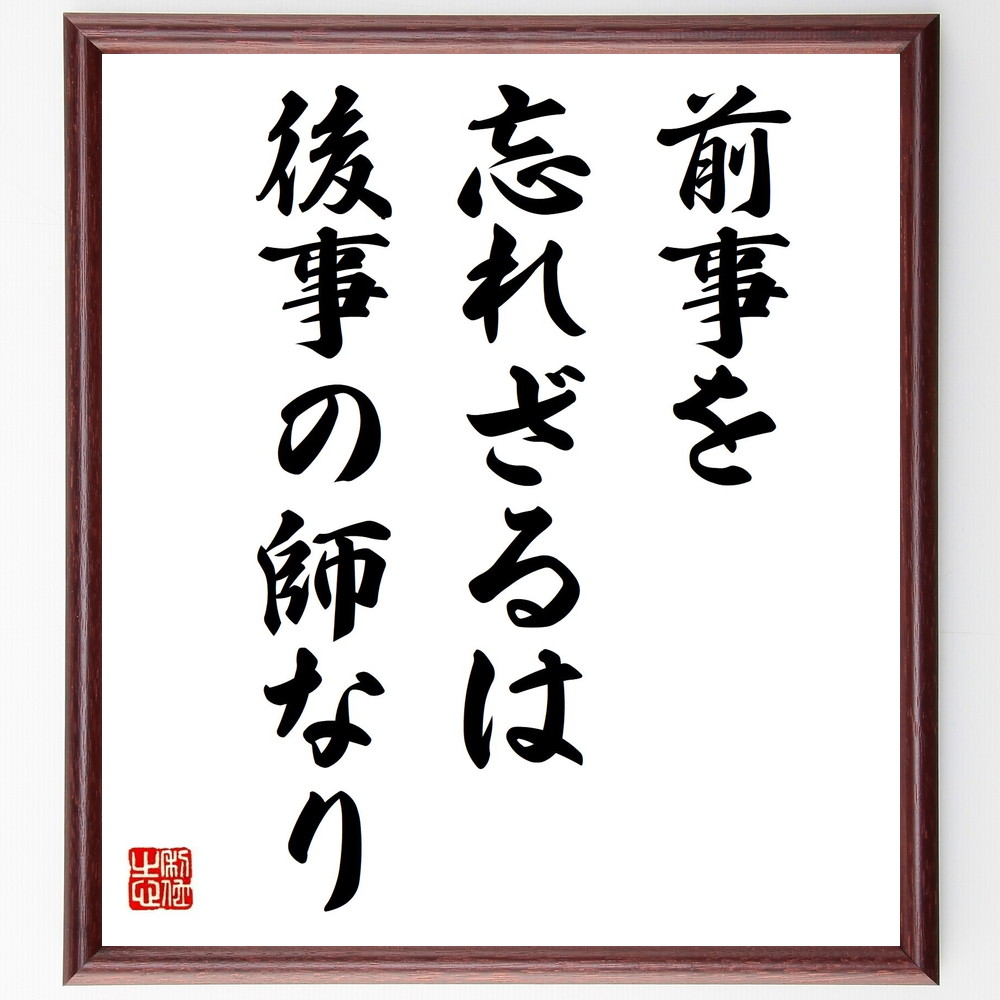 前事を
忘れざるは
後事の師なり